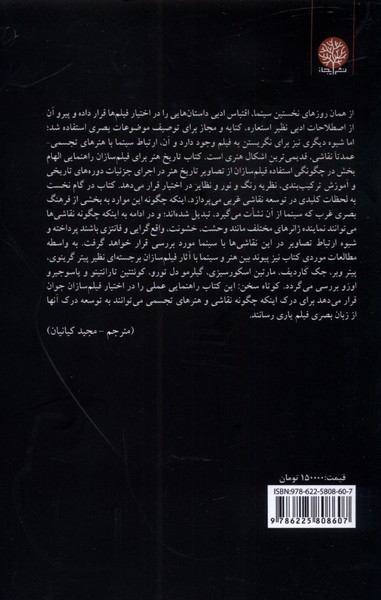 نشر چشمه
از همان روزهای نخستین سینما، اقتباس ادبی داستان‌هایی را در اختیار فیلم‌ها قرار داده و پیرو آن
از اصطلاحات ادبی نظیر استعاره، کنایه و مجاز برای توصیف موضوعات بصری استفاده شد؛
اما شیوه دیگری نیز برای نگریستن به فیلم وجود دارد و آن، ارتباط سینما با هنرهای تجسمی-
عمدتاً نقاشی، قدیمی‌ترین اشکال هنری است. کتاب تاریخ هنر برای فیلم‌سازان راهنمایی الهام
بخش در چگونگی استفاده فیلم‌سازان از تصاویر تاریخ هنر در اجرای جزئیات دوره‌های تاریخی
و آموزش ترکیب‌بندی، نظریه رنگ و نور و نظایر در اختیار قرار می‌دهد. کتاب در گام نخست
به لحظات کلیدی در توسعه نقاشی غربی می‌پردازد، اینکه چگونه این موارد به بخشی از فرهنگ
بصری غرب که سینما از آن نشأت می‌گیرد، تبدیل شده‌اند؛ و در ادامه به اینکه چگونه نقاشی‌ها
می‌توانند نماینده ژانرهای مختلف مانند وحشت، خشونت، واقع‌گرایی و فانتزی باشند پرداخته و
شیوه ارتباط تصاویر در این نقاشی‌ها با سینما مورد بررسی قرار خواهد گرفت. به واسطه
مطالعات موردی کتاب نیز پیوند بین هنر و سینما با آثار فیلم‌سازان برجسته‌ای نظیر پیتر گرینوی،
پیتر ویر، جک کاردیف، مارتین اسکورسیزی، گیلرمو دل تورو، کوئنتین تارانتینو و یاسوجیرو
اوزو بررسی می‌گردد. کوتاه سخن: این کتاب راهنمایی عملی را در اختیار فیلم‌سازان جوان
قرار می‌دهد برای درک اینکه چگونه نقاشی و هنرهای تجسمی می‌توانند به توسعه درک آنها
از زبان بصری فیلم یاری رسانند.
(مترجم - مجید کیانیان)
قیمت: ۱۵۰۰۰۰ تومان
ISBN:978-622-5808-60-7
9 786225 808607